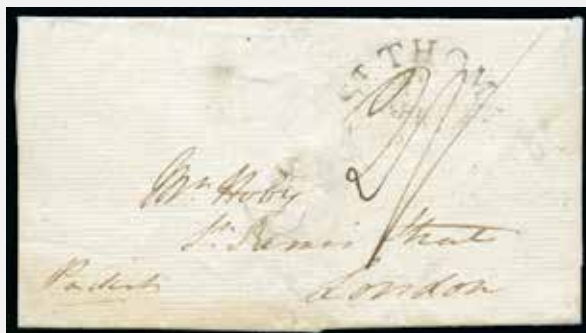 ST THOM
2/
Mr. Hoby
St. James's Street
London
Packet